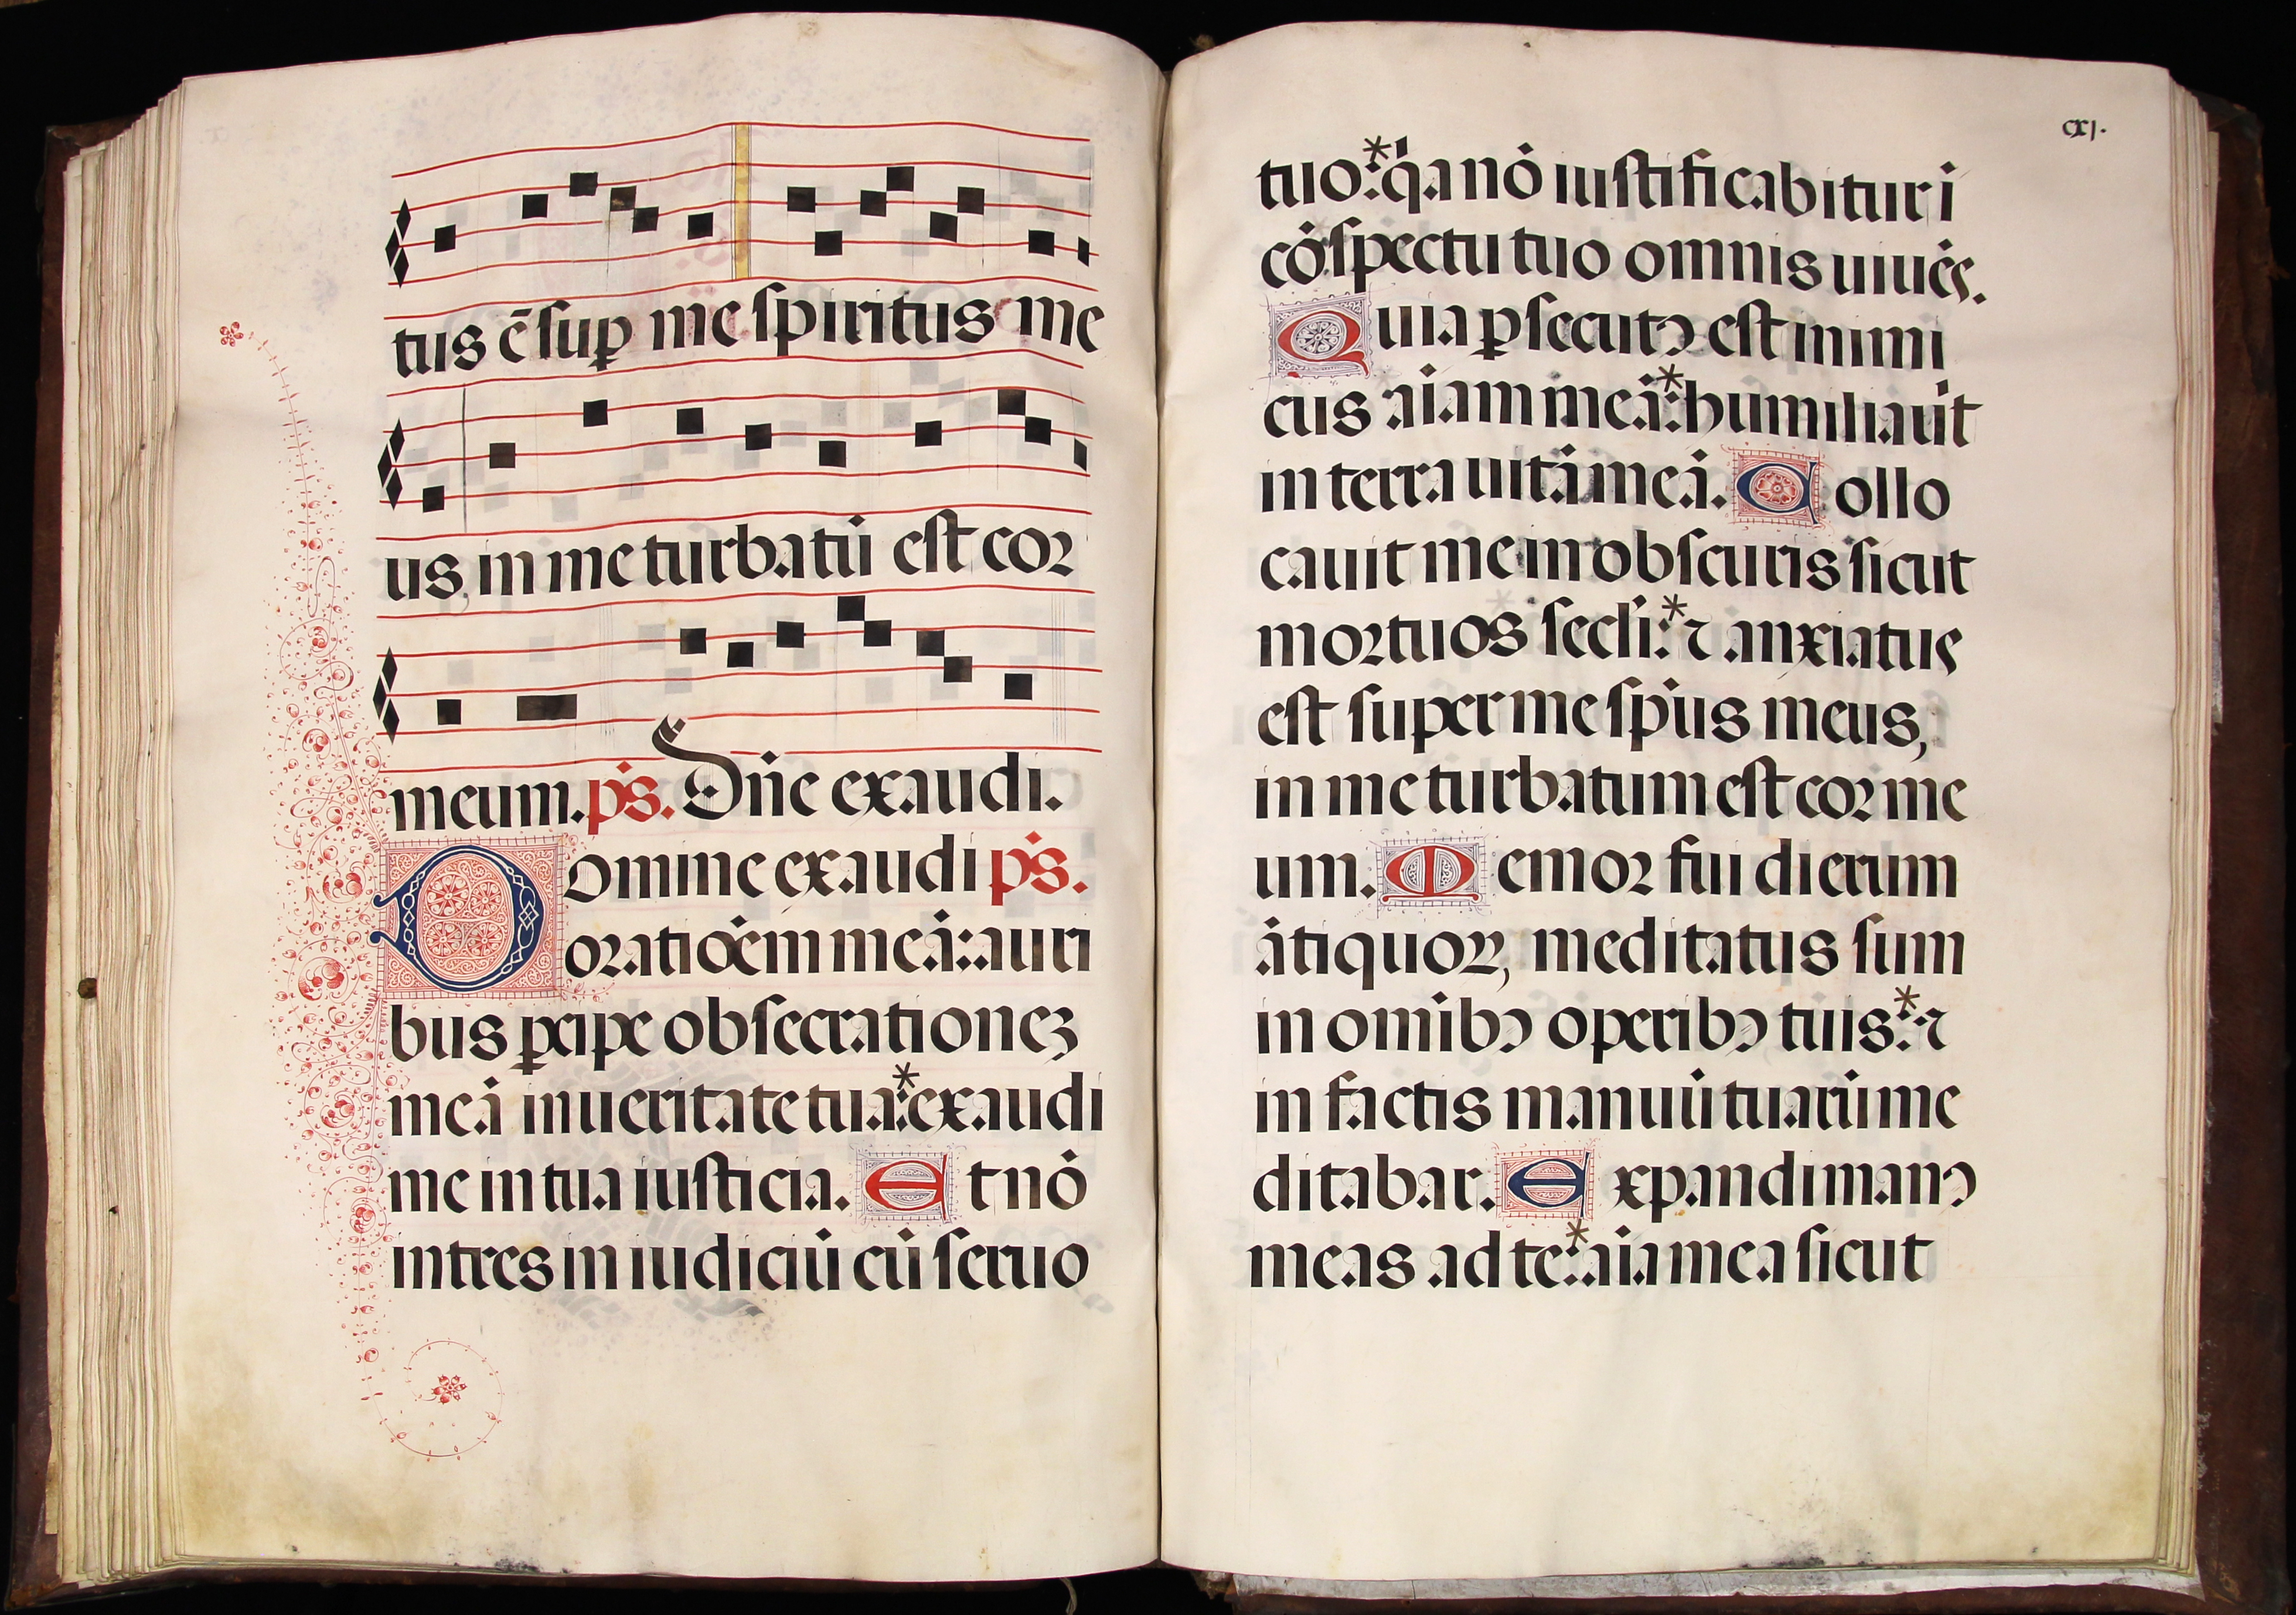 tus ē sup me spiritus me
us, in me turbatū est cor
meum. ps. Dñe exaudi.
Domine exaudi ps.
oratioēm meā: auri
bus pcipe obsecrationeȝ
meā in ueritate tua:* exaudi
me in tua iusticia. Et nō
intres in iudiciū cū seruo
cxj.
tuo:* qa nō iustificabitur ī
cōspectu tuo omnis uiuēs.
Quia psecutꝰ est inimi
cus aīam meā:* humiliauīt
in terra uitā meā. Collo
cauit me in obscuris sicut
mortuos secli:* ⁊ anxiatus
est super me spūs meus,
in me turbatum est cor me
um. Memor fui dierum
ātiquoꝝ, meditatus sum
in omībꝰ operibꝰ tuis:* ⁊
in factis manuū tuarū me
ditabar. Expandi manꝰ
meas ad te:* aīa mea sicut